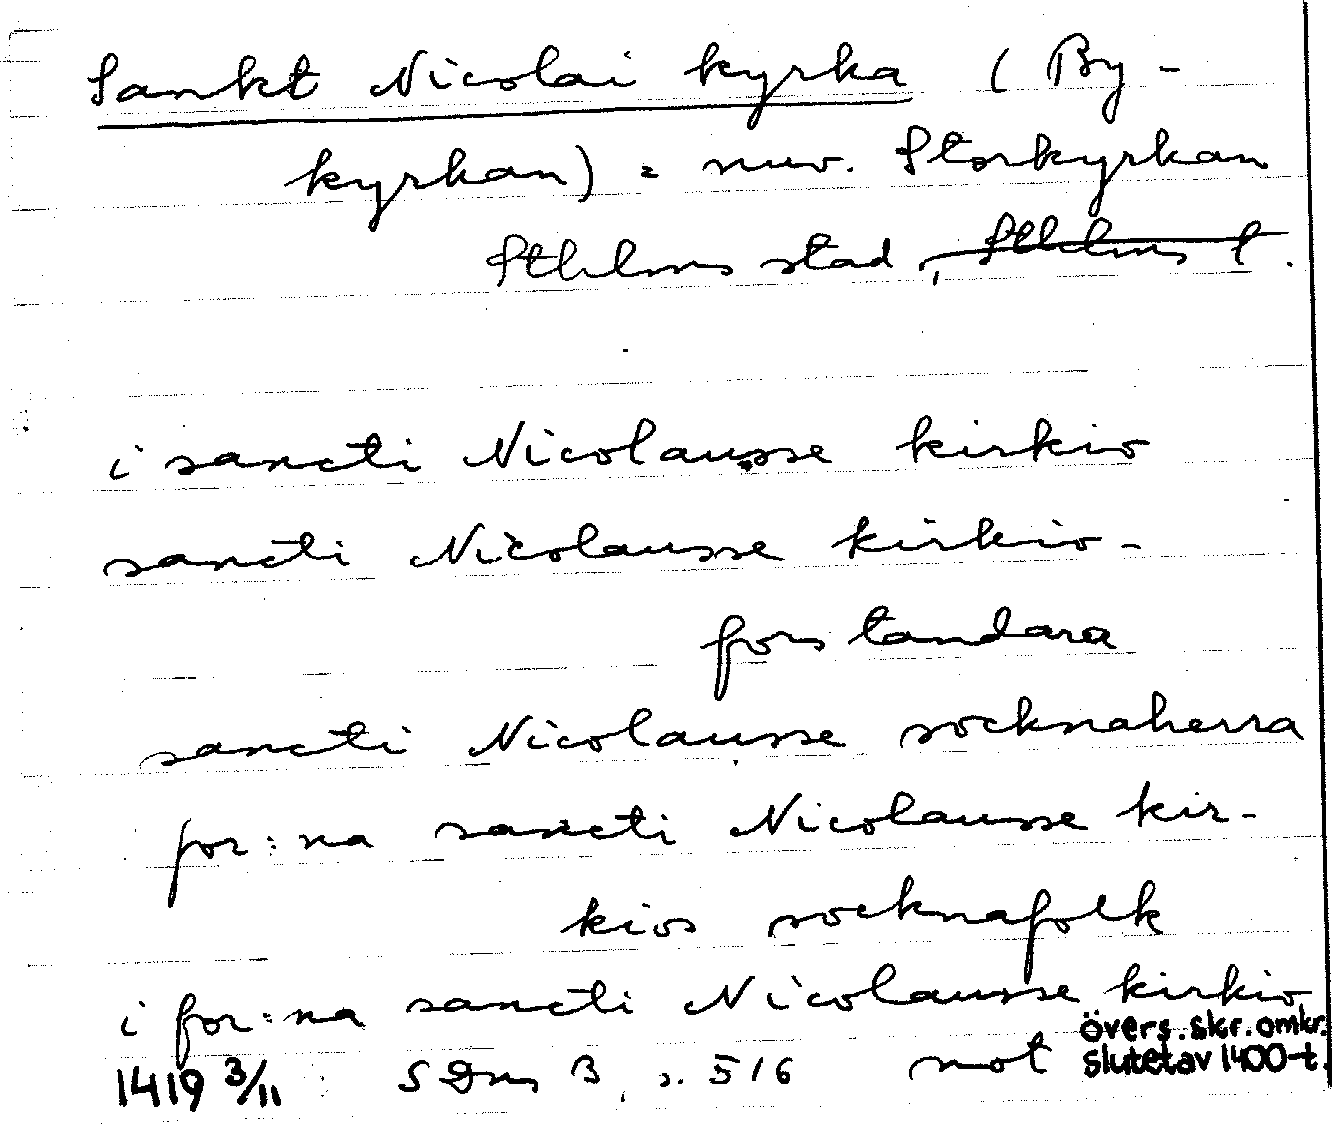 Sankt Nicolai kyrka (By-
kyrkan) = nuv. Storkyrkan
Sthlms stad, Sthlms l.
i sancti Nicolausse kirkio
sancti Nicolausse kirkio-
forstandara
sancti Nicolausse socknaherra
for:na sancti Nicolausse kir-
kios socknafolk
i for:na sancti Nicolausse kirkio
övers. skr. omkr.
slutet av 1400-t.
1419 3/11 SDns 3, s. 516 not